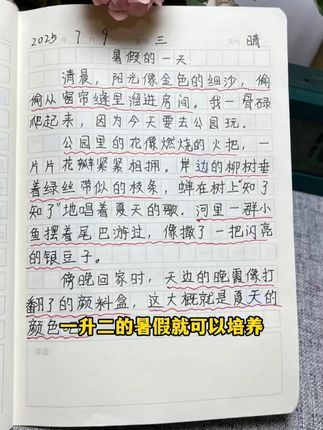 2025年7月9 三 天气 晴
暑假的一天
清晨，阳光像金色的细沙，偷
偷从窗帘缝里溜进房间。我一骨碌
爬起来，因为今天要去公园玩。
公园里的花像燃烧的火把，一
片片花瓣紧紧相拥。岸边的柳树垂
着绿丝带似的枝条，蝉在树上"知了
知了"地唱着夏天的歌。河里一群小
鱼摆着尾巴游过，像撒了一把闪亮
的银豆子。
傍晚回家时，天边的晚霞像打
翻了的颜料盒，这大概就是夏天的
颜色
一升二的暑假就可以培养
评语